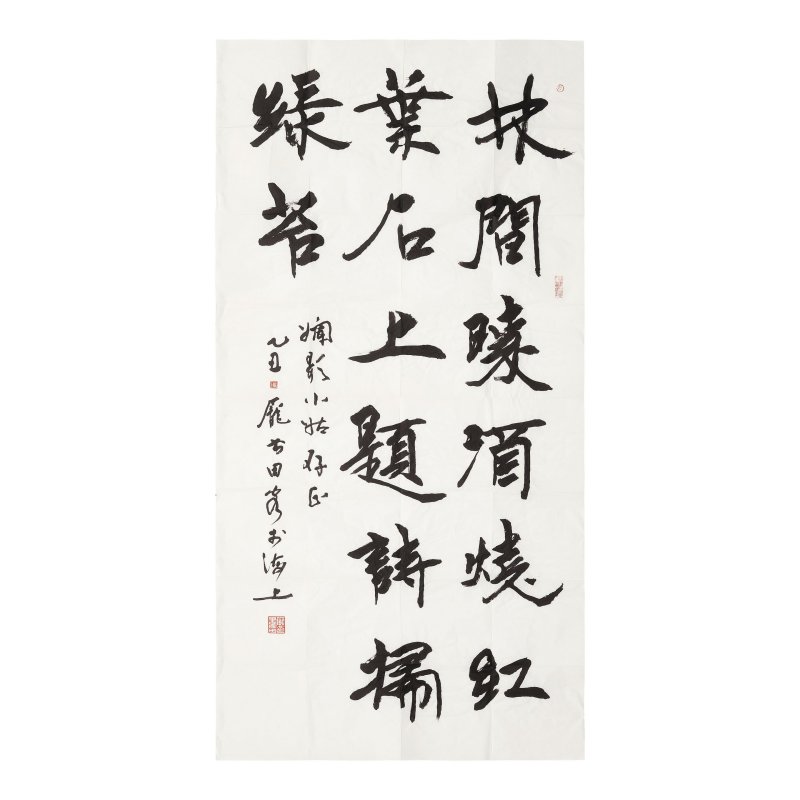 林間暖酒燒紅
葉石上題詩掃
綠苔
嫻影小姑存正
乙丑龐書田客於海上